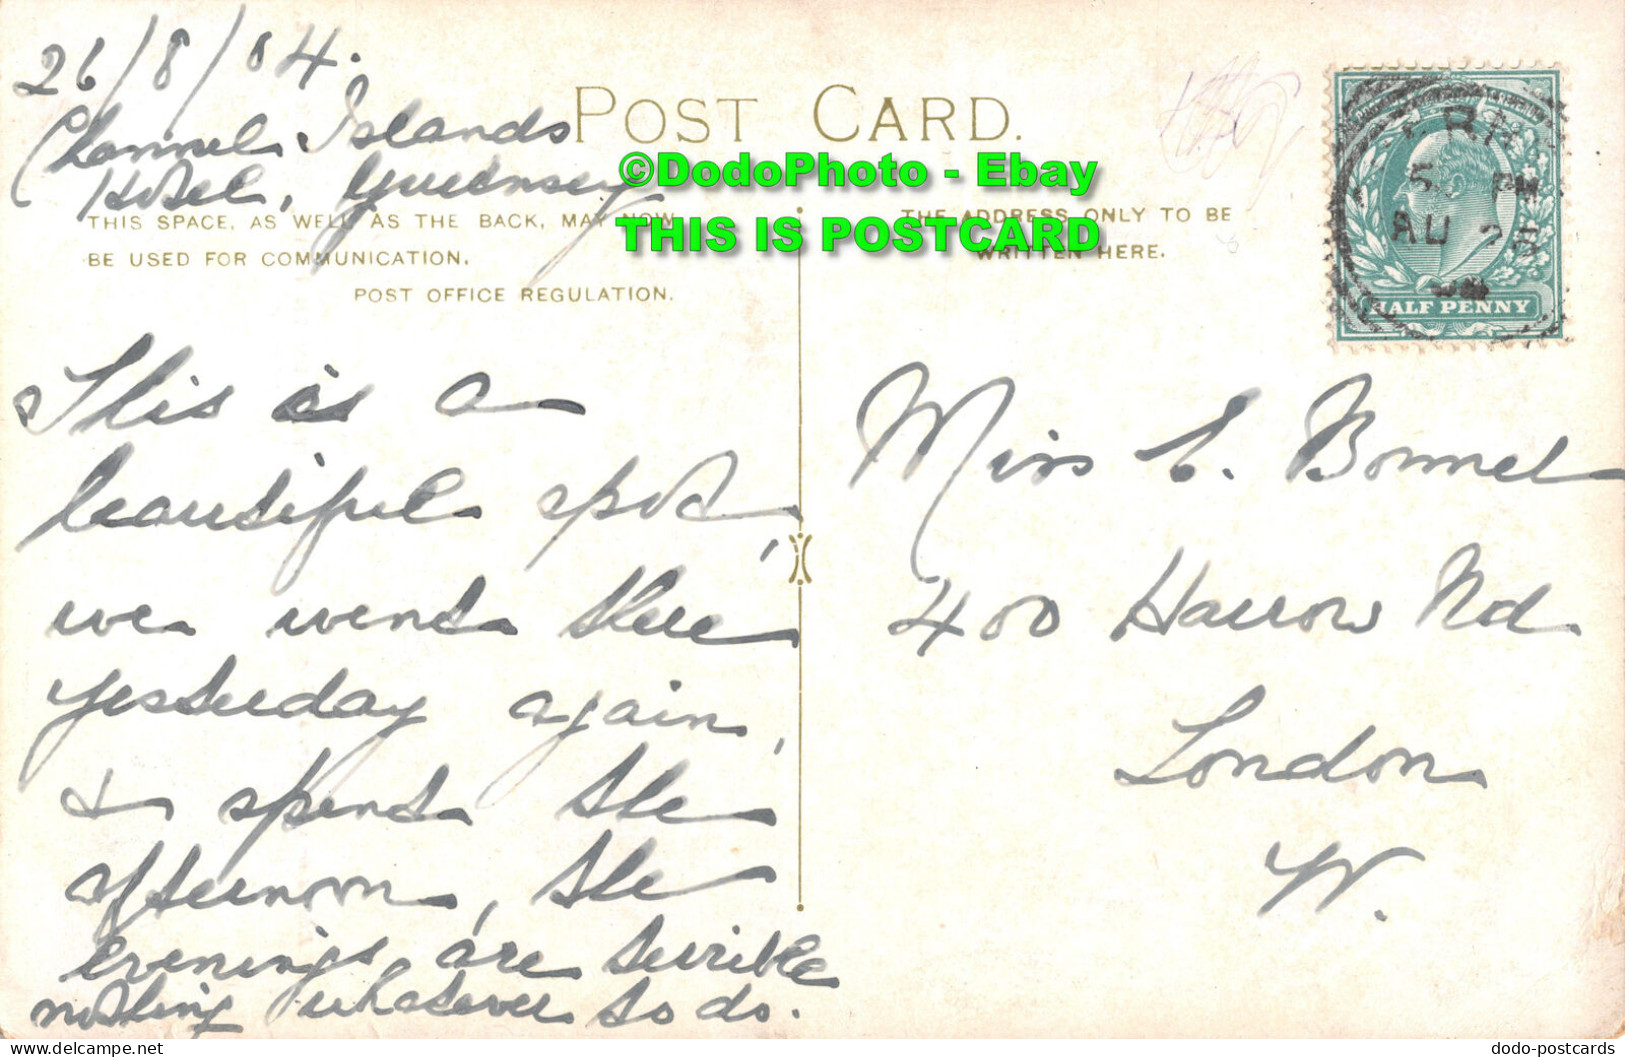 26/8/04.
Channel Islands
Hotel, Guernsey
POST CARD.
©DodoPhoto - Ebay
THIS IS POSTCARD
THIS SPACE, AS WELL AS THE BACK, MAY NOW
BE USED FOR COMMUNICATION.
POST OFFICE REGULATION.
THE ADDRESS ONLY TO BE
WRITTEN HERE.
HALF PENNY
PM
AU
This is a
beautiful spot,
we went there
yesterday again,
& spent the
afternoon, the
evenings are terrible
nothing whatever to do.
Miss E. Bonnel
400 Harrow Rd.
London
W.
dodo-postcards
Visit www.delcampe.net